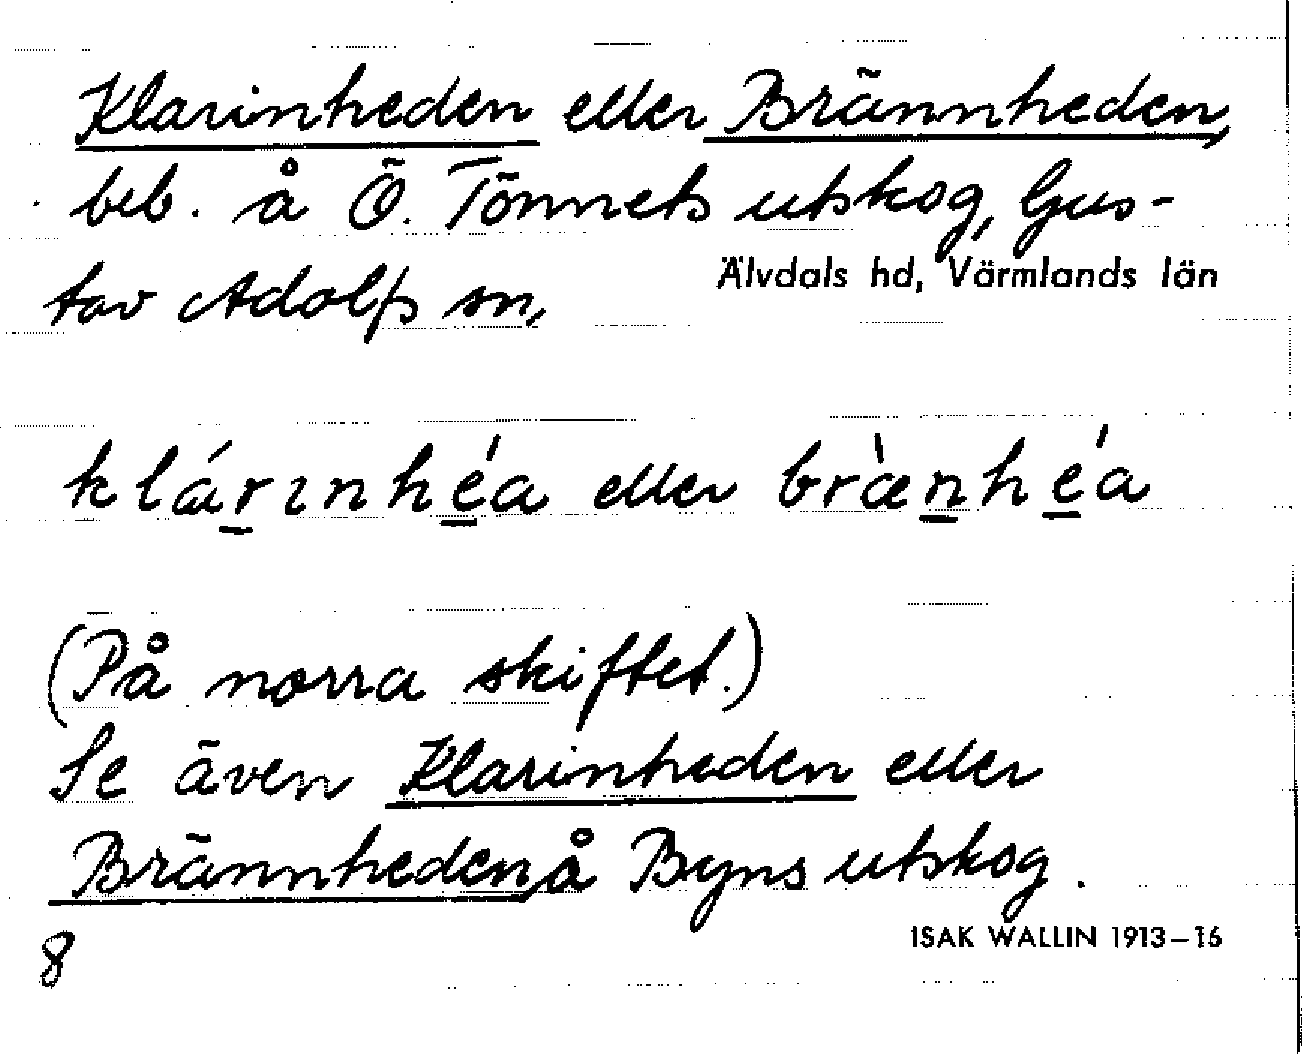 Klarinheden eller Brännheden,
beb. å Ö. Tönnets utskog, Gus-
tav Adolfs sn,
Älvdals hd, Värmlands län
klárınhé̲a eller bræ̀n̲hé̲a
(På norra skiftet.)
Se även Klarinheden eller
Brännheden, å Byns utskog.
8
ISAK WALLIN 1913–16